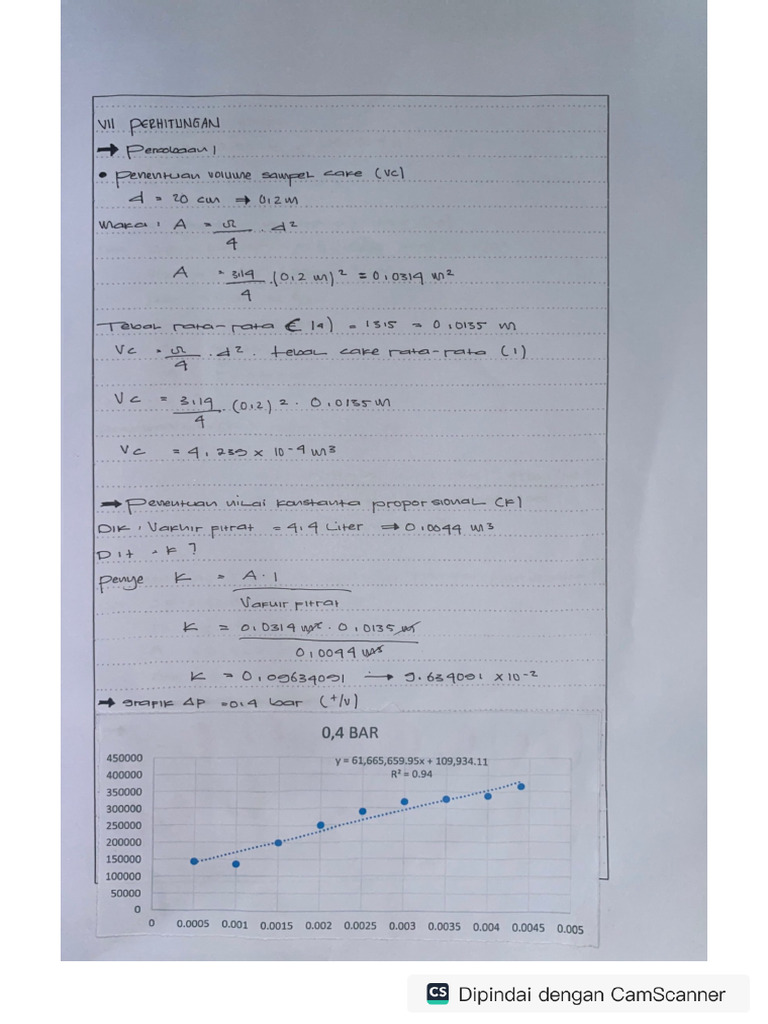 VII PERHITUNGAN
→ Percobaan 1
• Penentuan volume sampel cake (Vc)
d = 20 cm → 0,2 m
Maka, A = π/4 . d²
A = 3,14/4 . (0,2 m)² = 0,0314 m²
Tebal rata-rata = 13,5 = 0,0135 m
Vc = π/4 . d² . tebal cake rata-rata (1)
Vc = 3,14/4 . (0,2)² . 0,0135 m
Vc = 4,239 x 10⁻⁴ m³
→ Penentuan nilai konstanta proporsional (K)
Dik, Vakhir fitrat = 4,4 Liter ⇒ 0,0044 m³
Dit . K ?
Penye K = A . l / Vakhir fitrat
K = 0,0314 m² . 0,0135 m / 0,0044 m³
K = 0,09634091 → 9.634091 x 10⁻²
→ grafik ΔP = 0,4 bar (t/v)
0,4 BAR
y = 61,665,659.95x + 109,934.11
R² = 0.94
450000
400000
350000
300000
250000
200000
150000
100000
50000
0
0 0.0005 0.001 0.0015 0.002 0.0025 0.003 0.0035 0.004 0.0045 0.005
CS Dipindai dengan CamScanner